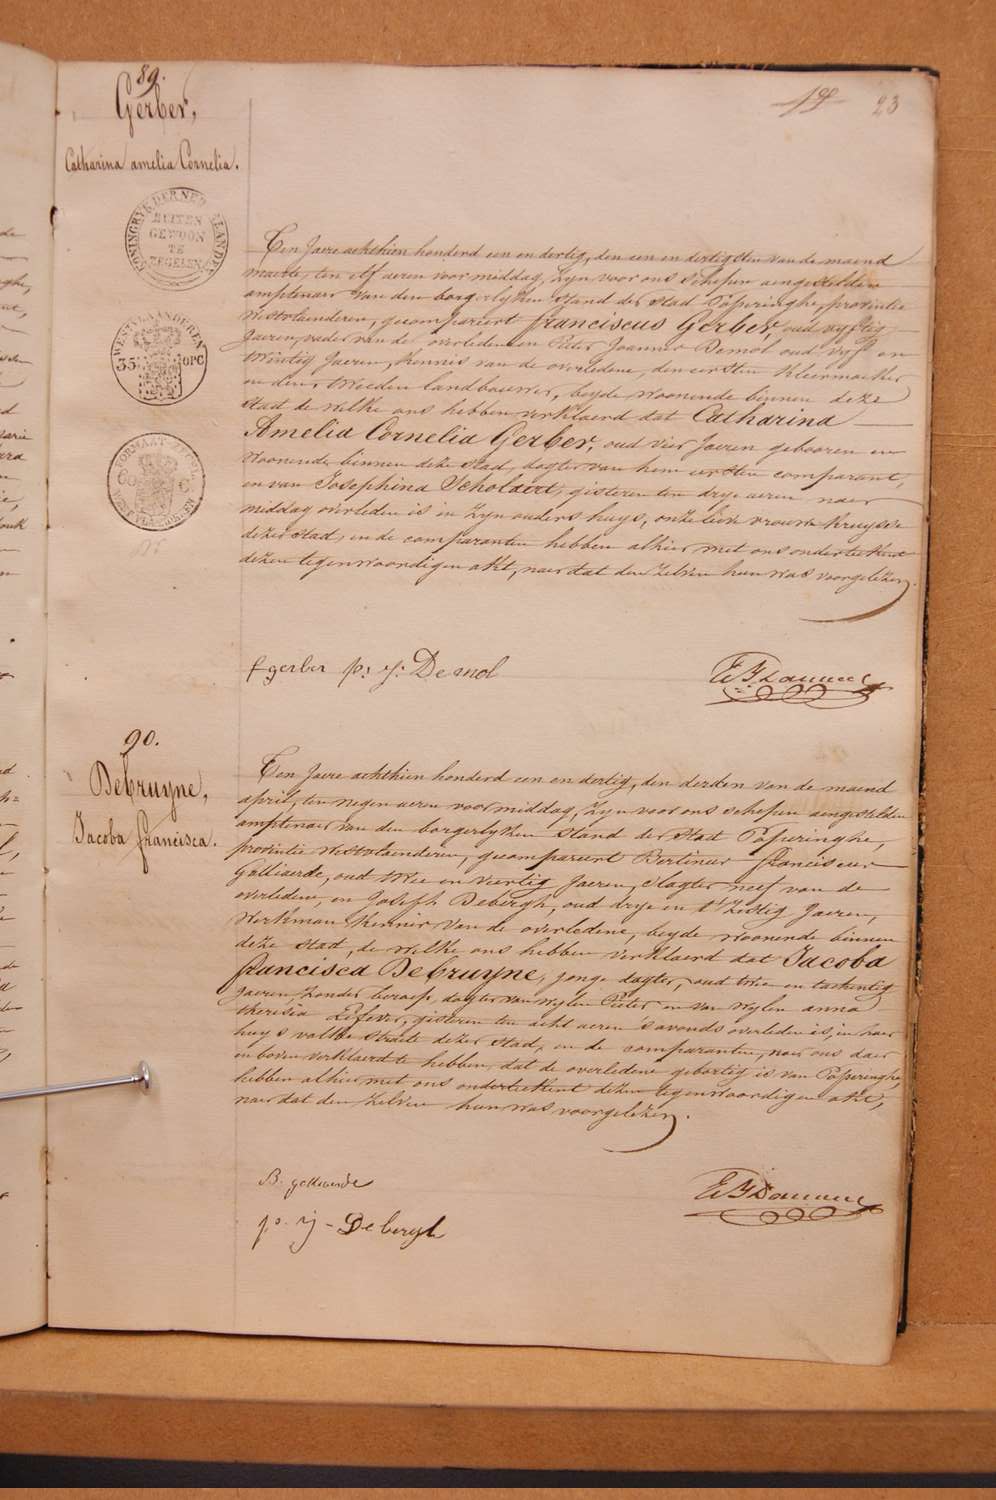 19 23
89.
Gerber,
Catharina amelia Cornelia.
KONINGRYK DER NEDERLANDEN
BUITEN
GEWOON
TE
ZEGELEN
WESTVLAANDEREN
35 OPC
FORMAAT ZEGEL
WESTVLAANDEREN
Een Jaere achthien honderd een en dertig, den een en dertigsten van de maend
maerte, ten elf aeren voormiddag, zyn voor ons schepen aengestelden
amptenaer van den borgerlyken stand der stad Poperinghe, provintie
westvlaenderen, gecompareert franciscus Gerber, oud vyftig
Jaeren, vader van de overledene en Pieter Joannes Demol oud vyf en
twintig Jaeren, kennis van de overledene, den eersten kleermaeker
en den tweeden landbouwer, beyde woonende binnen deze
stad de welke ons hebben verklaerd dat Catharina
Amelia Cornelia Gerber, oud vier Jaeren gebooren en
woonende binnen deze stad, dogter van hem eersten comparant,
en van Josephina Scholaert, gisteren ten drye aeren naer
middag overleden is en zyn ouders huys, onze lieve vrouwe kruysse
dezer stad, en de comparanten hebben alhier met ons onderteekent
dezen tegenwoordigen akt, naer dat den zelven hun was voorgelezen.
f gerber p: j: Demol
90.
Debruyne,
Jacoba francisca.
Een Jaere achthien honderd een en dertig, den derden van de maend
april, ten negen aeren voormiddag, zyn voor ons schepen aengestelden
amptenaer van den borgerlyken stand der stad Poperinghe,
provintie westvlaenderen, gecompareert Bertinus franciscus
Galliaerde, oud twee en viertig Jaeren, slagter neef van de
overledene, en Joseph Debergh, oud drye en t'zestig Jaeren,
werkman kennis van de overledene, beyde woonende binnen
deze stad, de welke ons hebben verklaerd dat Jacoba
francisca Debruyne, jonge dogter, oud twee en tachentig
Jaeren, zonder beroep, dogter van wylen Pieter en van wylen anna
theresia Lefever, gisteren ten acht aeren 's avonds overleden is, in haer
huys valke straete dezer stad, en de comparanten, naer ons daer
en boven verklaerd te hebben, dat de overledene gebortig is van Poperinghe
hebben alhier met ons onderteekent dezen tegenwoordigen akt,
naer dat den zelven hun was voorgelezen.
p. j - Debergh